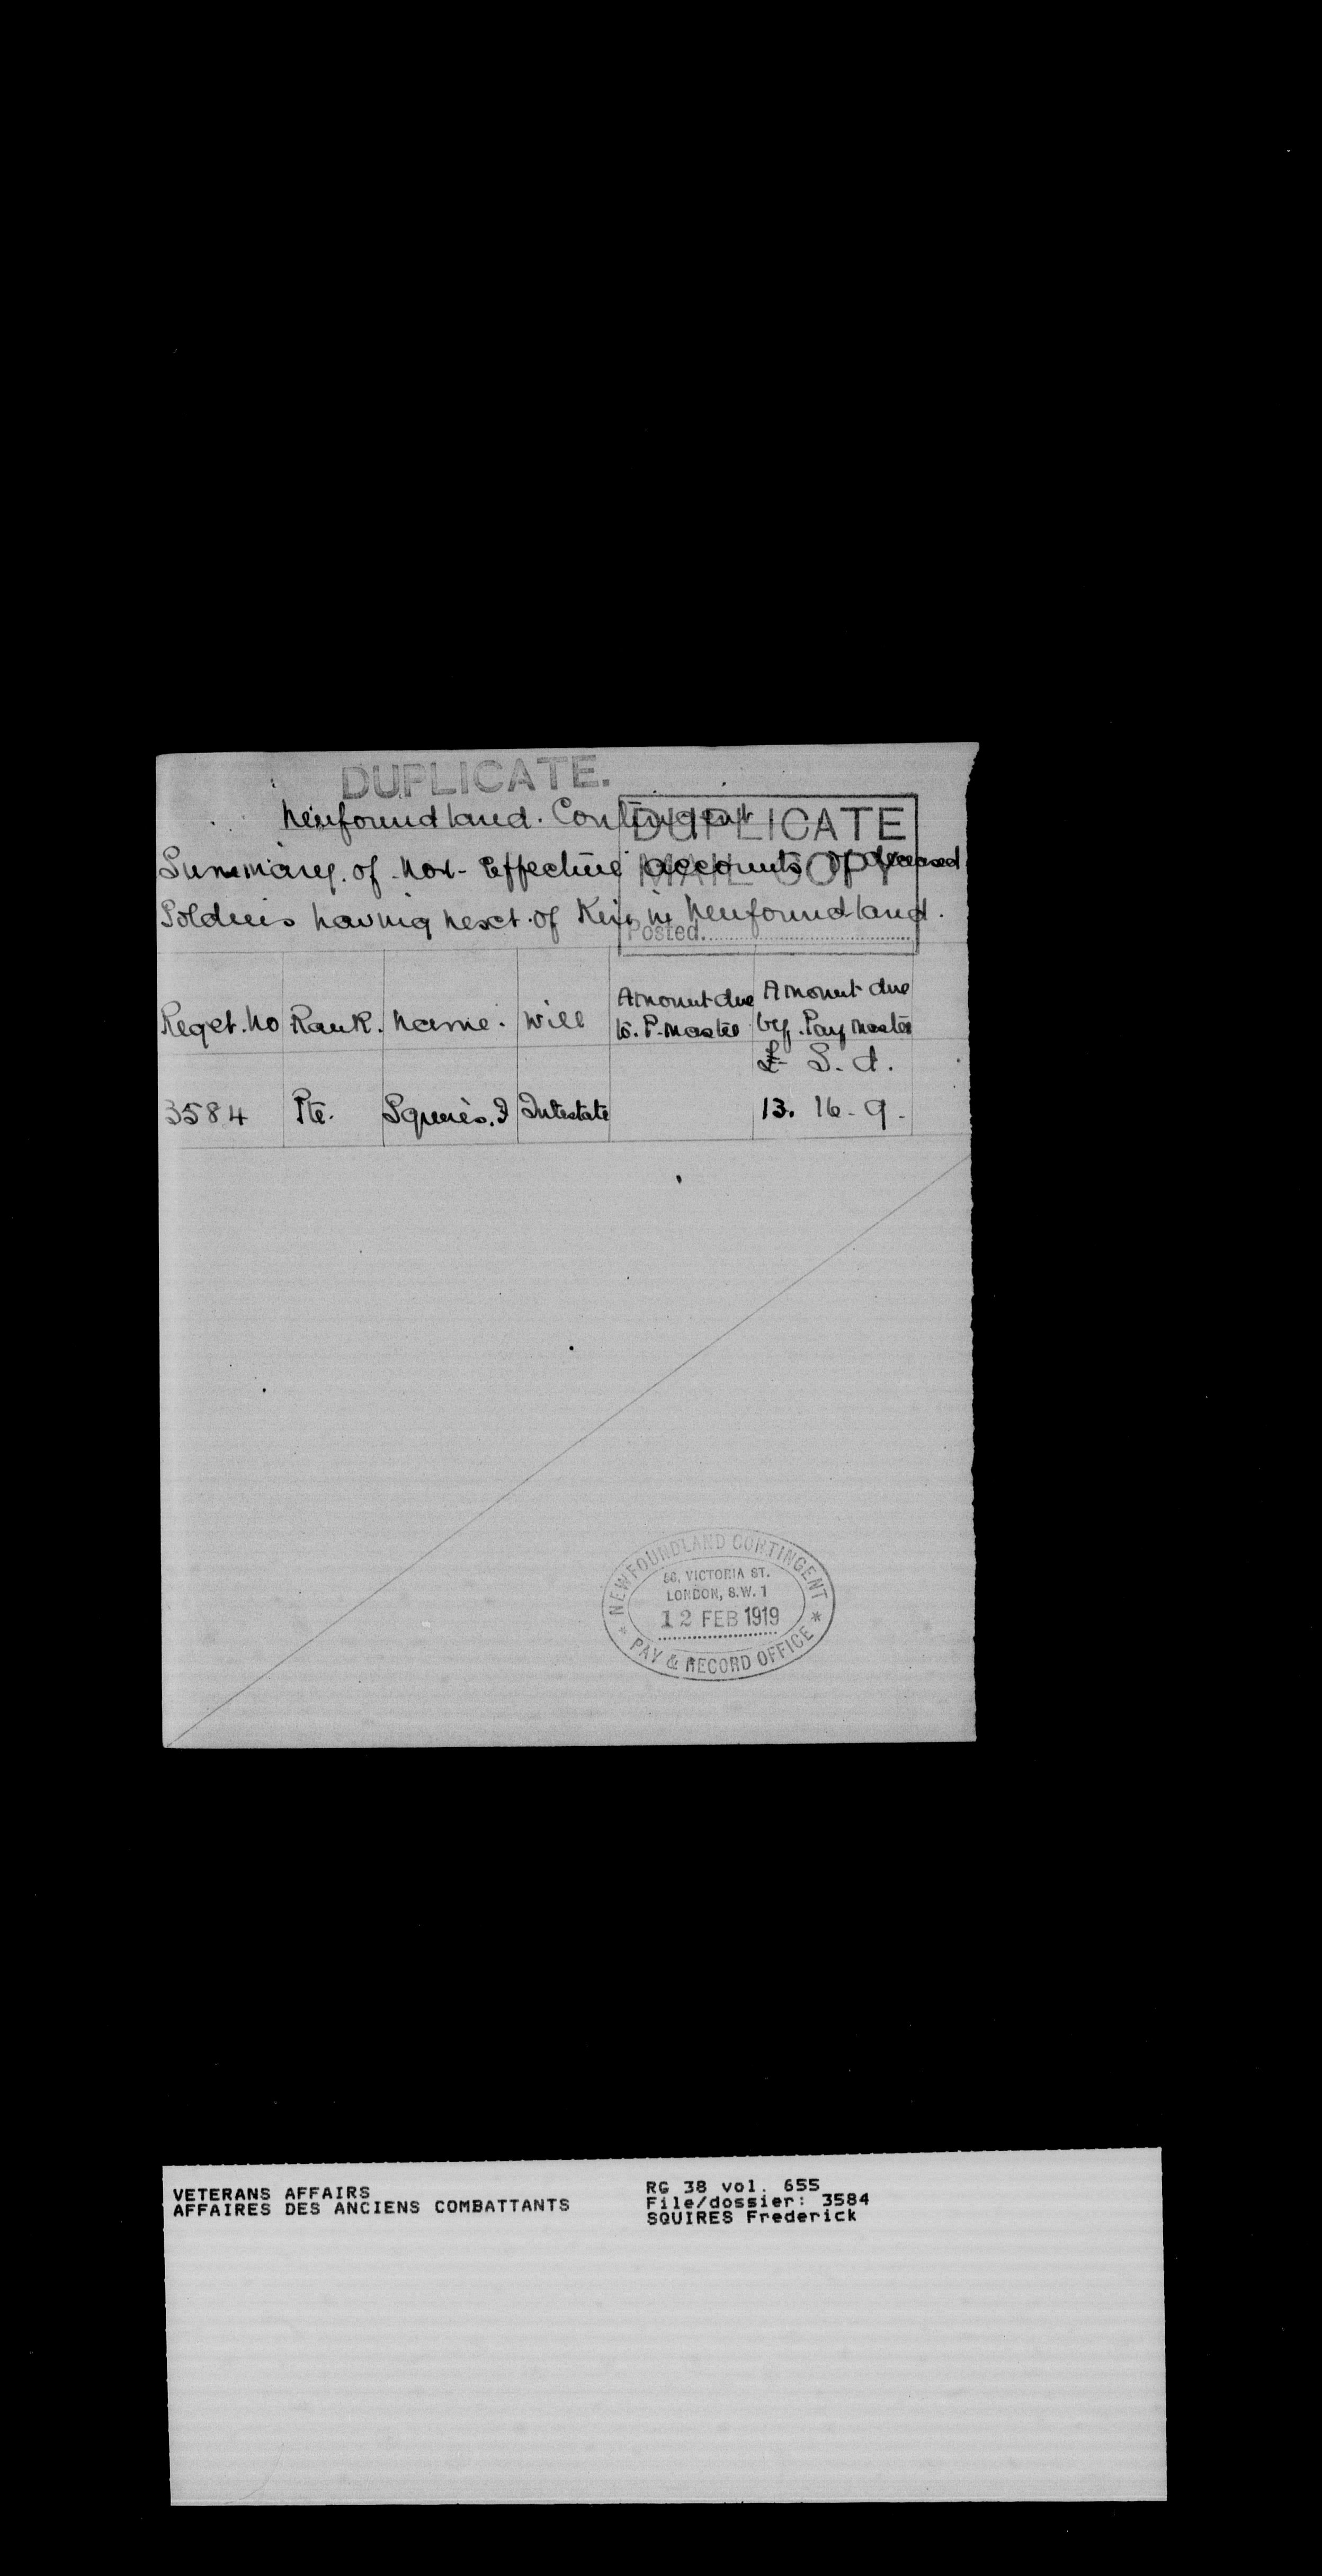 DUPLICATE.
Newfoundland. Contingent
DUPLICATE
MAIL COPY
Posted
Summary. of Non-Effective accounts of deceased
Soldiers having next of Kin in Newfoundland.
Reget. No Rank. Name. Will Amount due to. P-Master Amount due by. Pay Master
£ S. d.
3584 Pte. Squires. F Intestate 13. 16 - 9.
NEWFOUNDLAND CONTINGENT
VICTORIA ST.
LONDON, S.W. 1
12 FEB 1919
PAY & RECORD OFFICE
VETERANS AFFAIRS
AFFAIRES DES ANCIENS COMBATTANTS
RG 38 vol. 655
File/dossier: 3584
SQUIRES Frederick